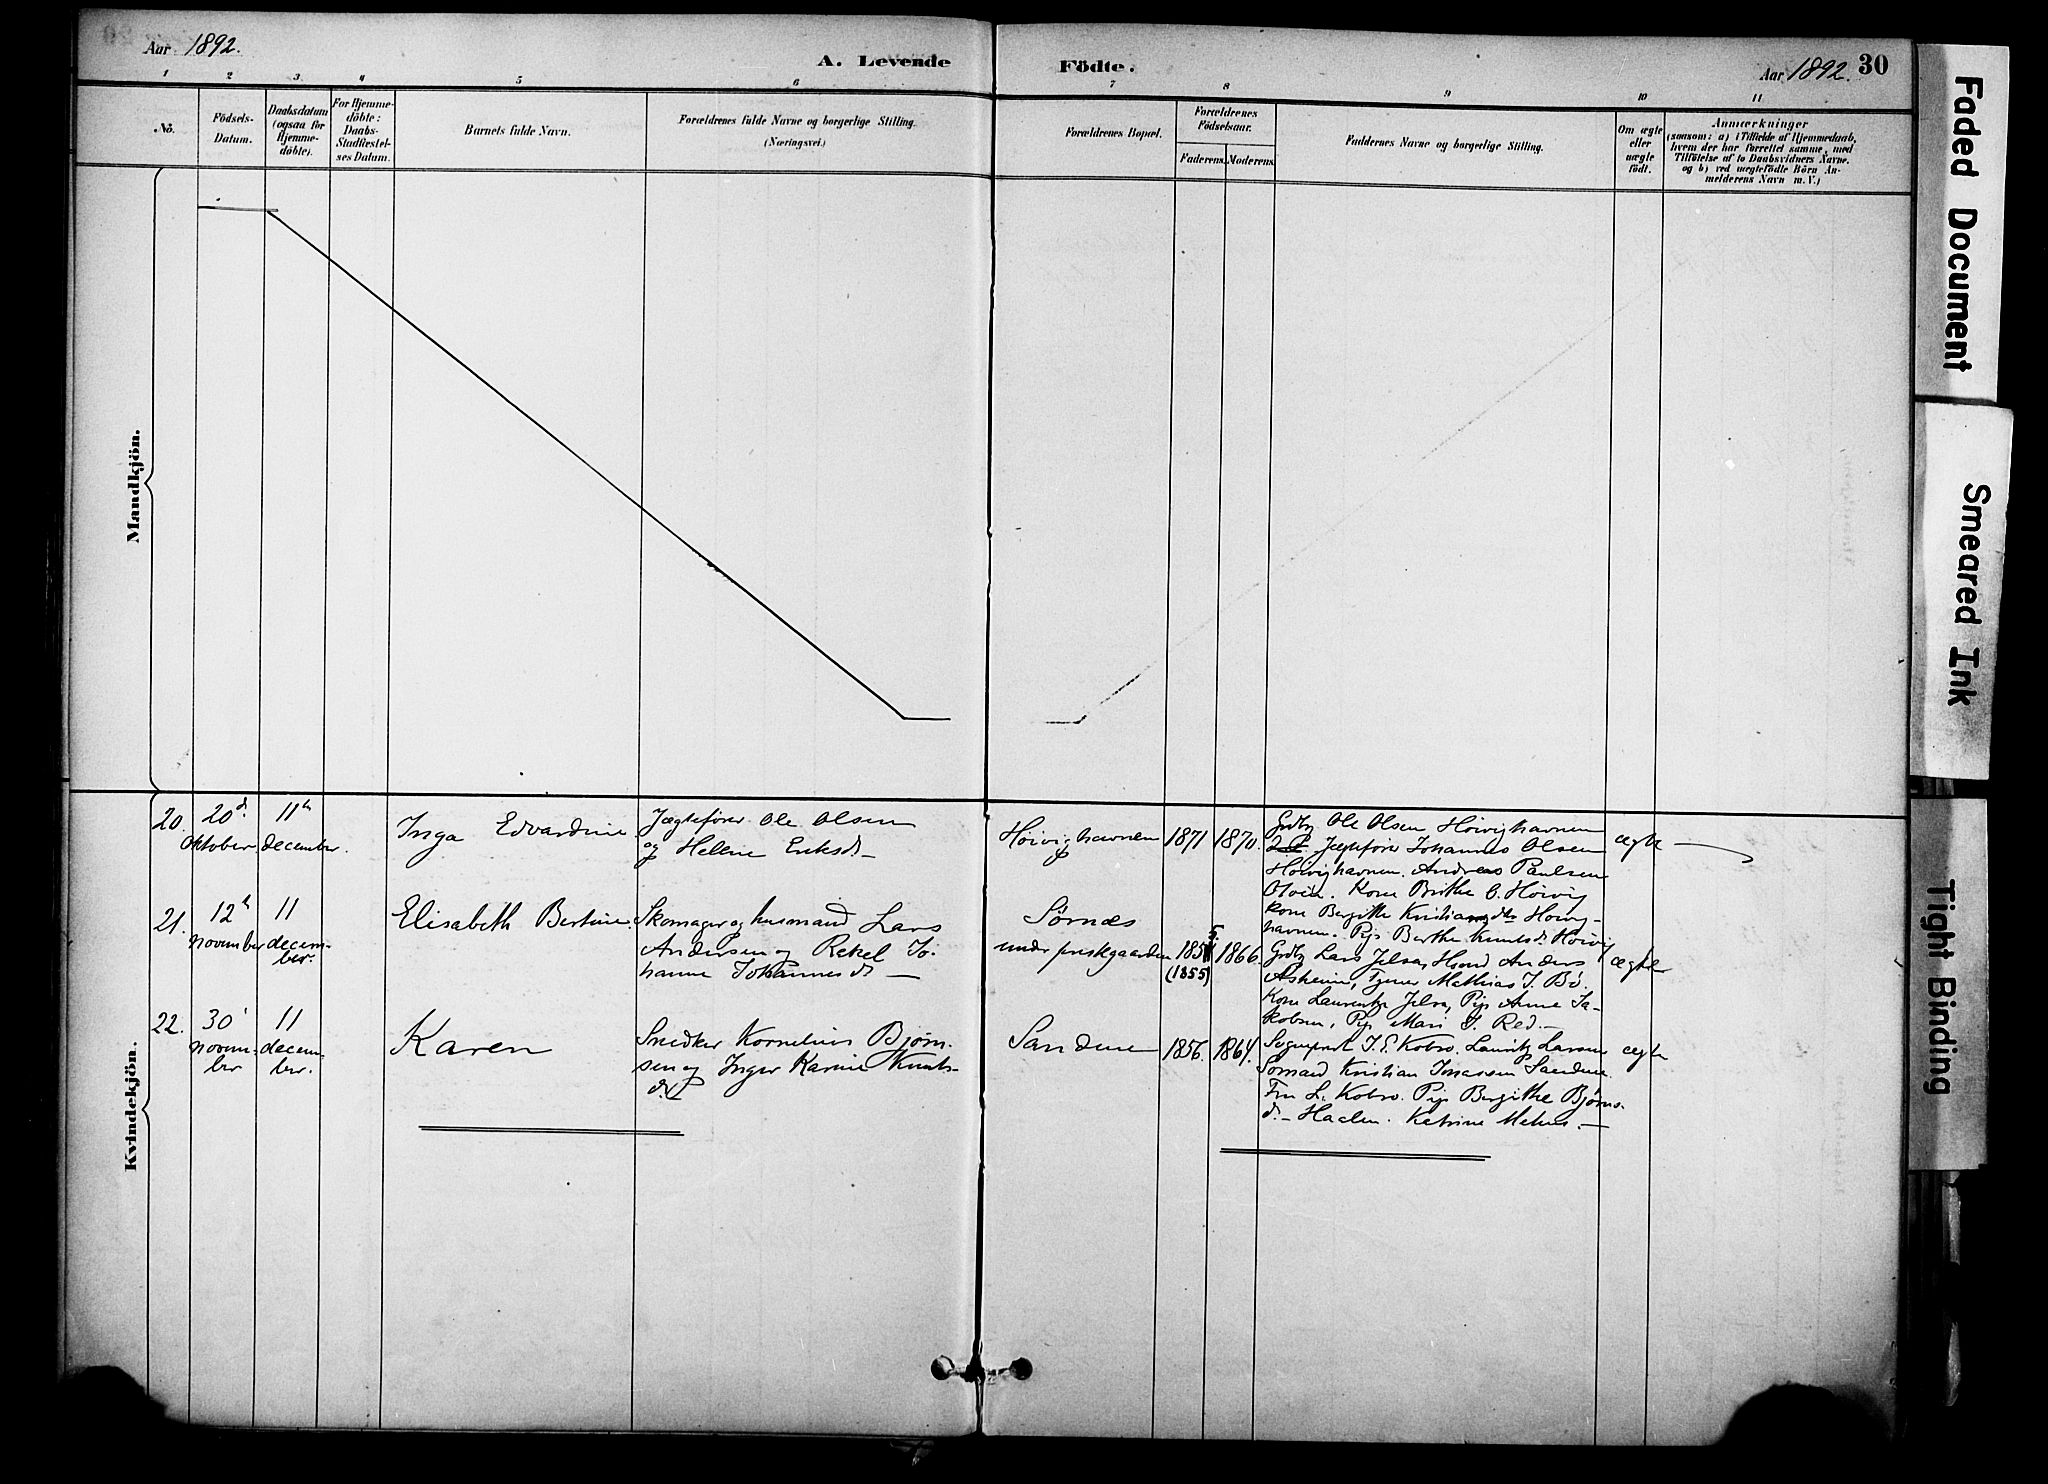 Aar 1892.
A. Levende
Födte.
Aar 1892. 30
1 2 3 4 5 6 7 8 9 10 11
No.
Födsels-
Datum.
Daabsdatum
(ogsaa for
Hjemme-
döbte).
For Hjemme-
döbte:
Daabs-
Stadfæstel-
ses Datum.
Barnets fulde Navn.
Forældrenes fulde Navne og borgerlige Stilling.
(Næringsvei.)
Forældrenes Bopæl.
Forældrenes
Födselsaar.
Faderens. Moderens.
Faddernes Navne og borgerlige Stilling.
Om ægte
eller
uægte
födt.
Anmærkninger
(saasom: a) i Tilfælde af Hjemmedaab,
hvem der har forrettet samme, med
Tilföielse af to Daabsvidners Navne.
og b) ved uægtefödte Börn An-
melderens Navn m. V.)
Mandkjön.
Kvindekjön.
20.
20d.
Oktober.
11te
december.
Inga Edvardine
Jægtefører Ole Olsen
og Helene Eriksd.
Høivighavnen
1871
1870.
Grdbr Ole Olsen Høivighavnen
Jægtefører Johannes Olsen
Høivighavnen. Andreas Paulsen
Kone Brithe C. Høivig
Kone Bergitte Høivig-
havnen. Pige Berthe Knutsd. Høivig
ægte
21.
12te
November
11
decem-
ber.
Elisabeth Bertine
Skomager og husmand Lars
Andersen og Rakel Jo-
hanne Johannesd.
Sørnæs
under prestgaarden
185 5.
(1855)
1866.
Grdbr Lars Jelsa, Anders
Askeim, Tjener Mathias J. Bø.
Kone Jelsa, Pige Anne Ja-
kobsen, Pige Mari J. Red.
ægte
22.
30
Novem-
ber
11
decem-
ber.
Karen
Snedker Kornelius Bjørn-
sen og Inger Karine Knuts-
d.
Sandene
1856.
1864.
Sogneprest J. S. Kobro. Lauritz Larsen
Kristian Jonassen Sandene.
Fru L. Kobro. Pige Bergithe Bjørns-
d. Haalen. Katrine
ægte
Faded Document
Smeared Ink
Tight Binding